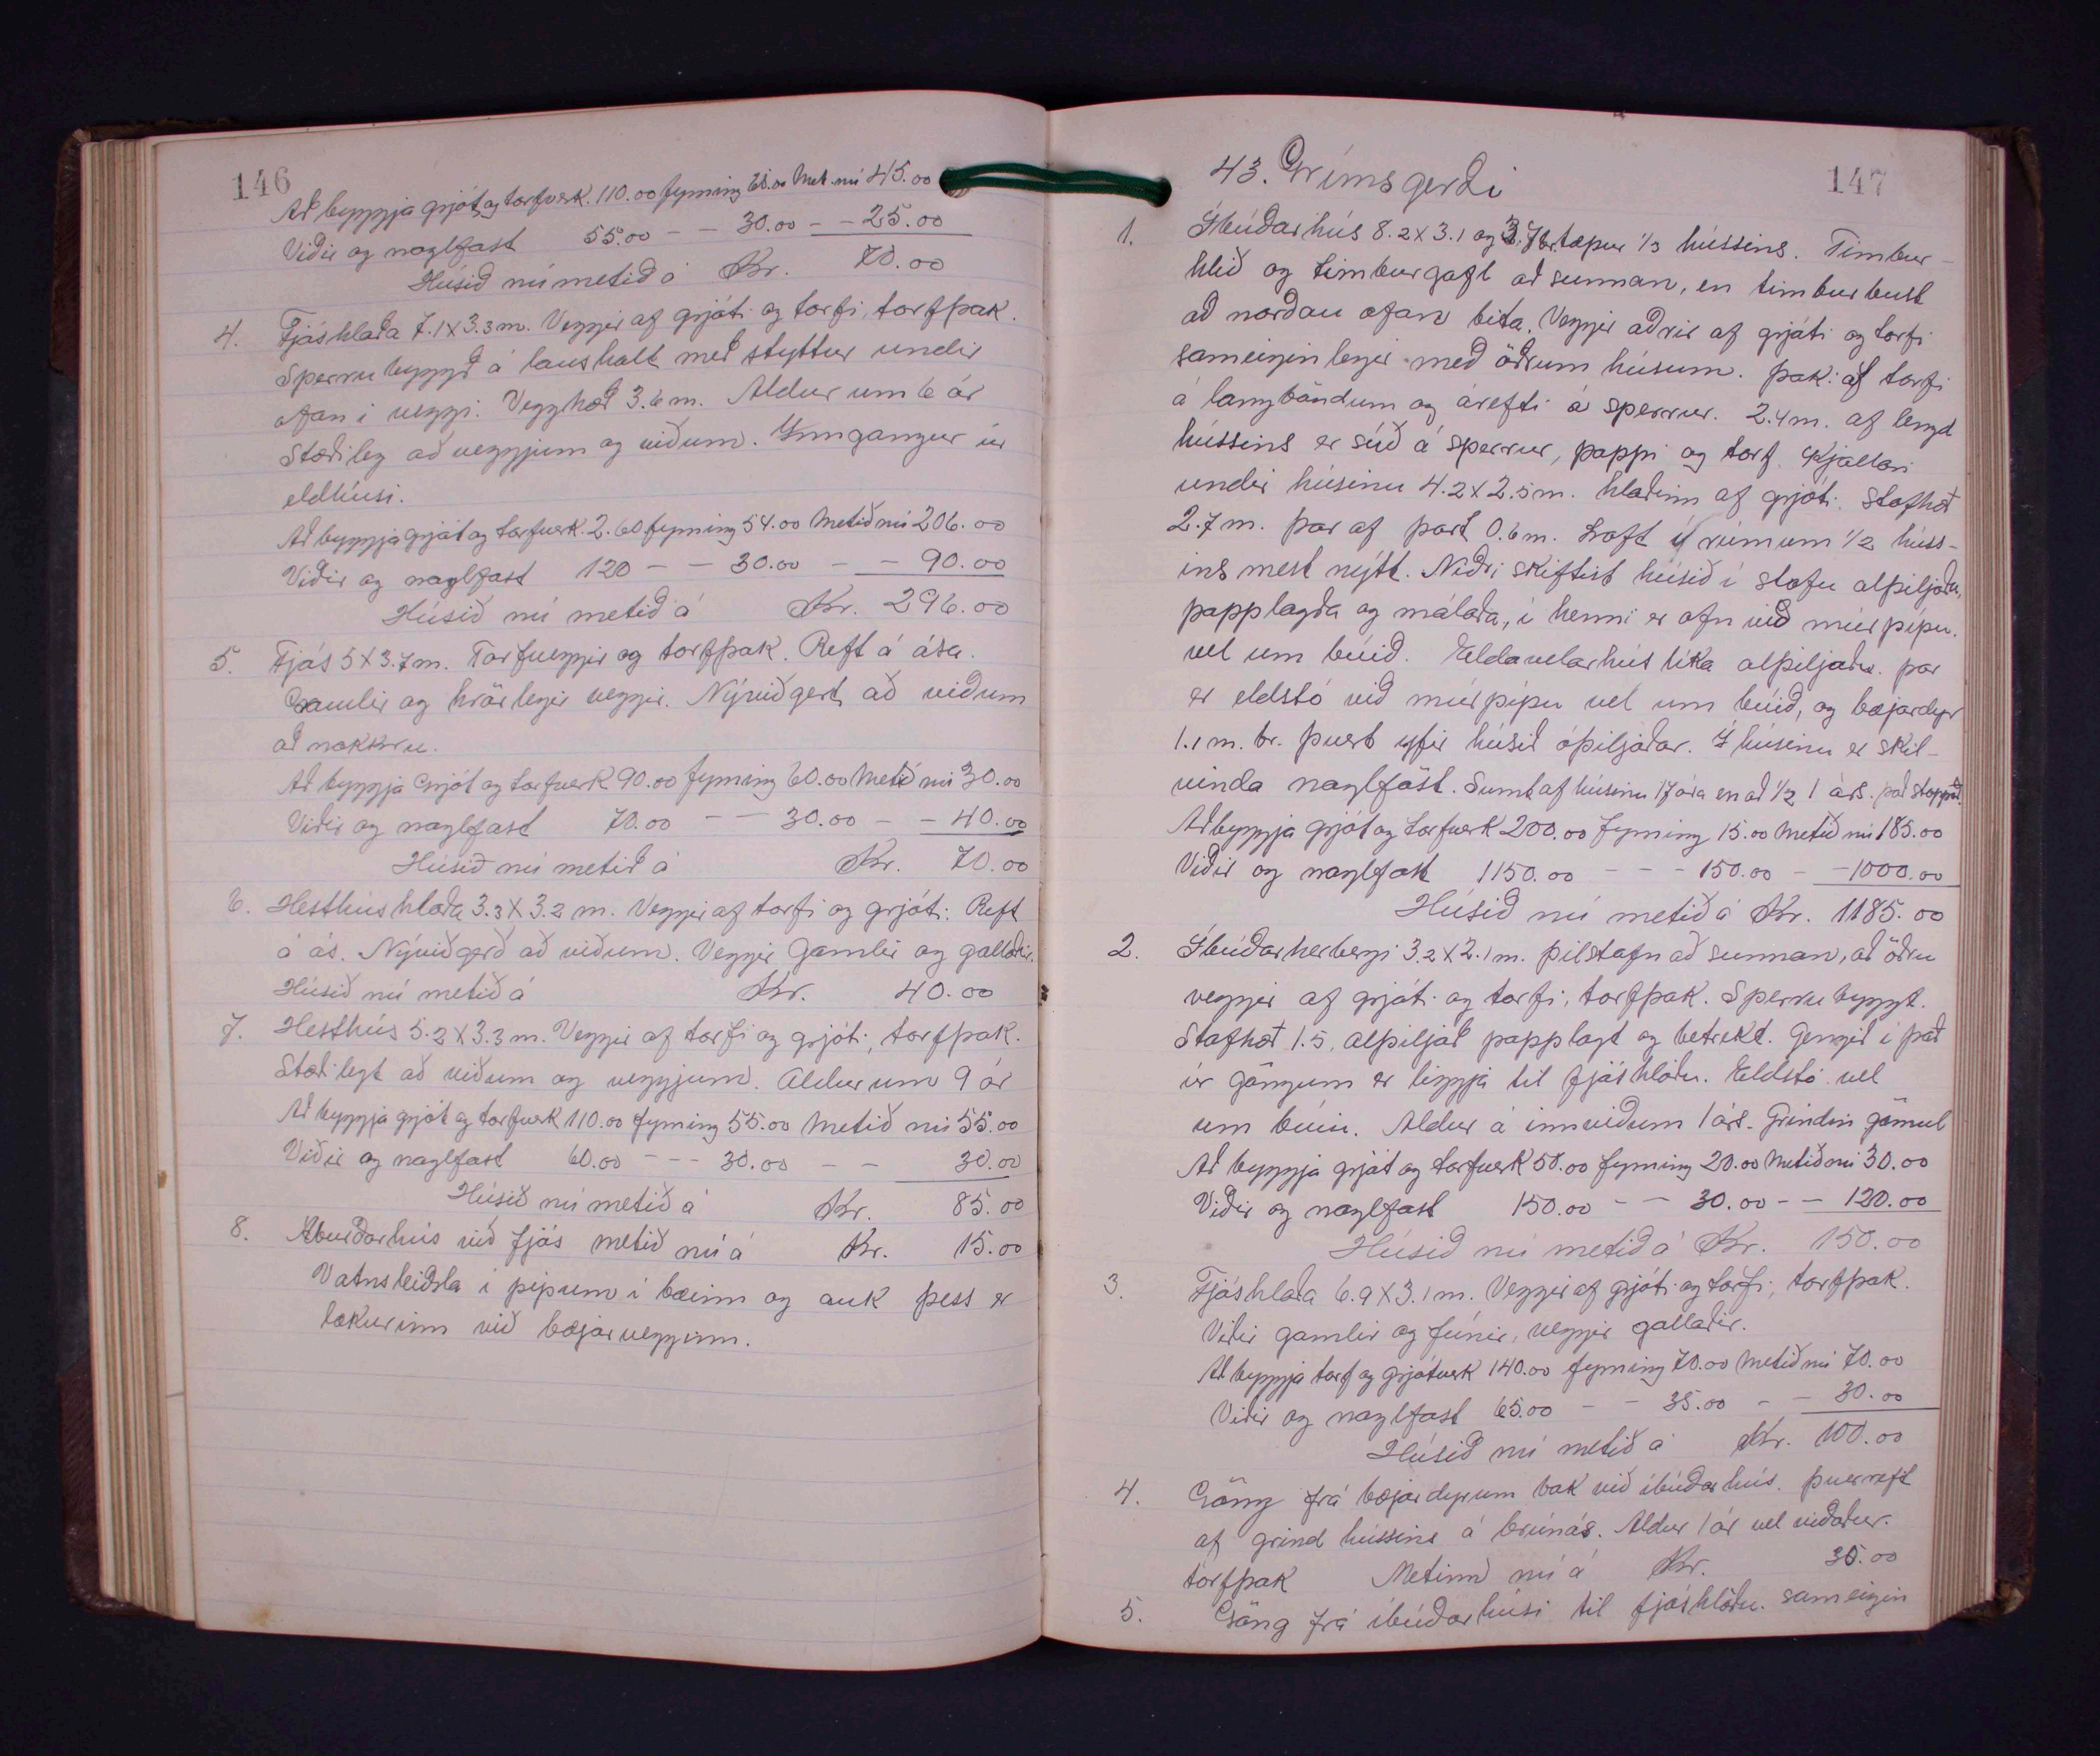 146
Að byggja grjót og torfverk. 110.00 fyrning 65.00 Met. nú 45.00
Viðir og naglfast 55.00 - - 30.00 - - 25.00
Húsið nú metið á Kr. 70.00
4. Fjóshlaða 7.1 x 3.3 m. Veggir af grjóti og torfi, torfþak.
Sperrubyggð á lausholt með styttur undir
ofan í veggi. Vegghæð 3.6 m. Aldur um 6 ár
Stæðileg að veggjum og viðum. Inngangur úr
eldhúsi.
Að byggja grjót og torfverk. 2.60 fyrning 54.00 Metið nú 206.00
Viðir og naglfast 120 - - 30.00 - - 90.00
Húsið nú metið á Kr. 296.00
5. Fjós 5 x 3.7 m. Torfveggir og torfþak. Reft á ása.
Gamlir og hrörlegir veggir. Nýviðgert að viðum
að nokkru.
Að byggja grjót og torfverk 90.00 fyrning 60.00 Metið nú 30.00
Viðir og naglfast 70.00 - - 30.00 - - 40.00
Húsið nú metið á Kr. 70.00
6. Hesthúshlaða 3.3 x 3.2 m. Veggir af torfi og grjóti. Reft
á ás. Nýviðgerð að viðum. Veggir gamlir og gallaðir.
Húsið nú metið á Kr. 40.00
7. Hesthús 5.2 x 3.3 m. Veggir af torfi og grjóti, torfþak.
Stæðilegt að viðum og veggjum. Aldur um 9 ár
Að byggja grjót og torfverk 110.00 fyrning 55.00 Metið nú 55.00
Viðir og naglfast 60.00 - - - 30.00 - - 30.00
Húsið nú metið á Kr. 85.00
8. Áburðarhús við fjós metið nú á Kr. 15.00
Vatnsleiðsla í pípum í bæinn og auk þess er
lækurinn við bæjarvegginn.
147
43. Grímsgerði
1. Íbúðarhús 8.2 x 3.1 og tæpur 1/3 hússins. Timbur-
hlið og timburgafl að sunnan, en timburbust
að norðan ofan bita. Veggir aðrir af grjóti og torfi
sameiginlegir með öðrum húsum. Þak af torfi
á langböndum og árefti á sperrur. 2.4 m. af lengd
hússins er súð á sperrur, pappi og torf. Kjallari
undir húsinu 4.2 x 2.5 m. hlaðinn af grjóti. Stafhæð
2.7 m. þar af port 0.6 m. Loft í rúmum 1/2 húss-
ins mest nýtt. Niðri skiftist húsið í stofu alþiljaða,
papplagða og málaða, í henni er ofn við múrpípu.
vel um búið. Eldavelarhús líka alþiljað. þar
er eldstó við múrpípu vel um búið, og bæjardyr
1.1 m. br. þvert yfir húsið óþiljaðar. Í húsinu er skil-
vinda naglföst. Sumt af húsinu 17 ára en að 1/2 1 árs. það stoppað.
Að byggja grjót og torfverk 200.00 fyrning 15.00 Metið nú 185.00
Viðir og naglfast 1150.00 - - - 150.00 - - 1000.00
Húsið nú metið á Kr. 1185.00
2. Íbúðarherbergi 3.2 x 2.1 m. Þilstafn að sunnan, að öðru
veggir af grjóti og torfi, torfþak. Sperrubyggt.
Stafhæð 1.5, alþiljað papplagt og betrekt. Gengið í það
úr göngum er liggja til fjóshlöðu. Eldstó vel
um búin. Aldur á innviðum 1 árs. Grindin gömul
Að byggja grjót og torfverk 50.00 fyrning 20.00 Metið nú 30.00
Viðir og naglfast 150.00 - - 30.00 - - 120.00
Húsið nú metið á Kr. 150.00
3. Fjóshlaða 6.9 x 3.1 m. Veggir af grjóti og torfi, torfþak.
Viðir gamlir og fúnir, veggir gallaðir.
Að byggja torf og grjótverk 140.00 fyrning 70.00 Metið nú 70.00
Viðir og naglfast 65.00 - - 35.00 - - 30.00
Húsið nú metið á Kr. 100.00
4. Göng frá bæjardyrum bak við íbúðarhús. Þverreft
af grind hússins á brúnás. Aldur 1 ár vel viðaður.
torfþak Metinn nú á Kr. 35.00
5. Göng frá íbúðarhúsi til fjóshlöðu. sameigin